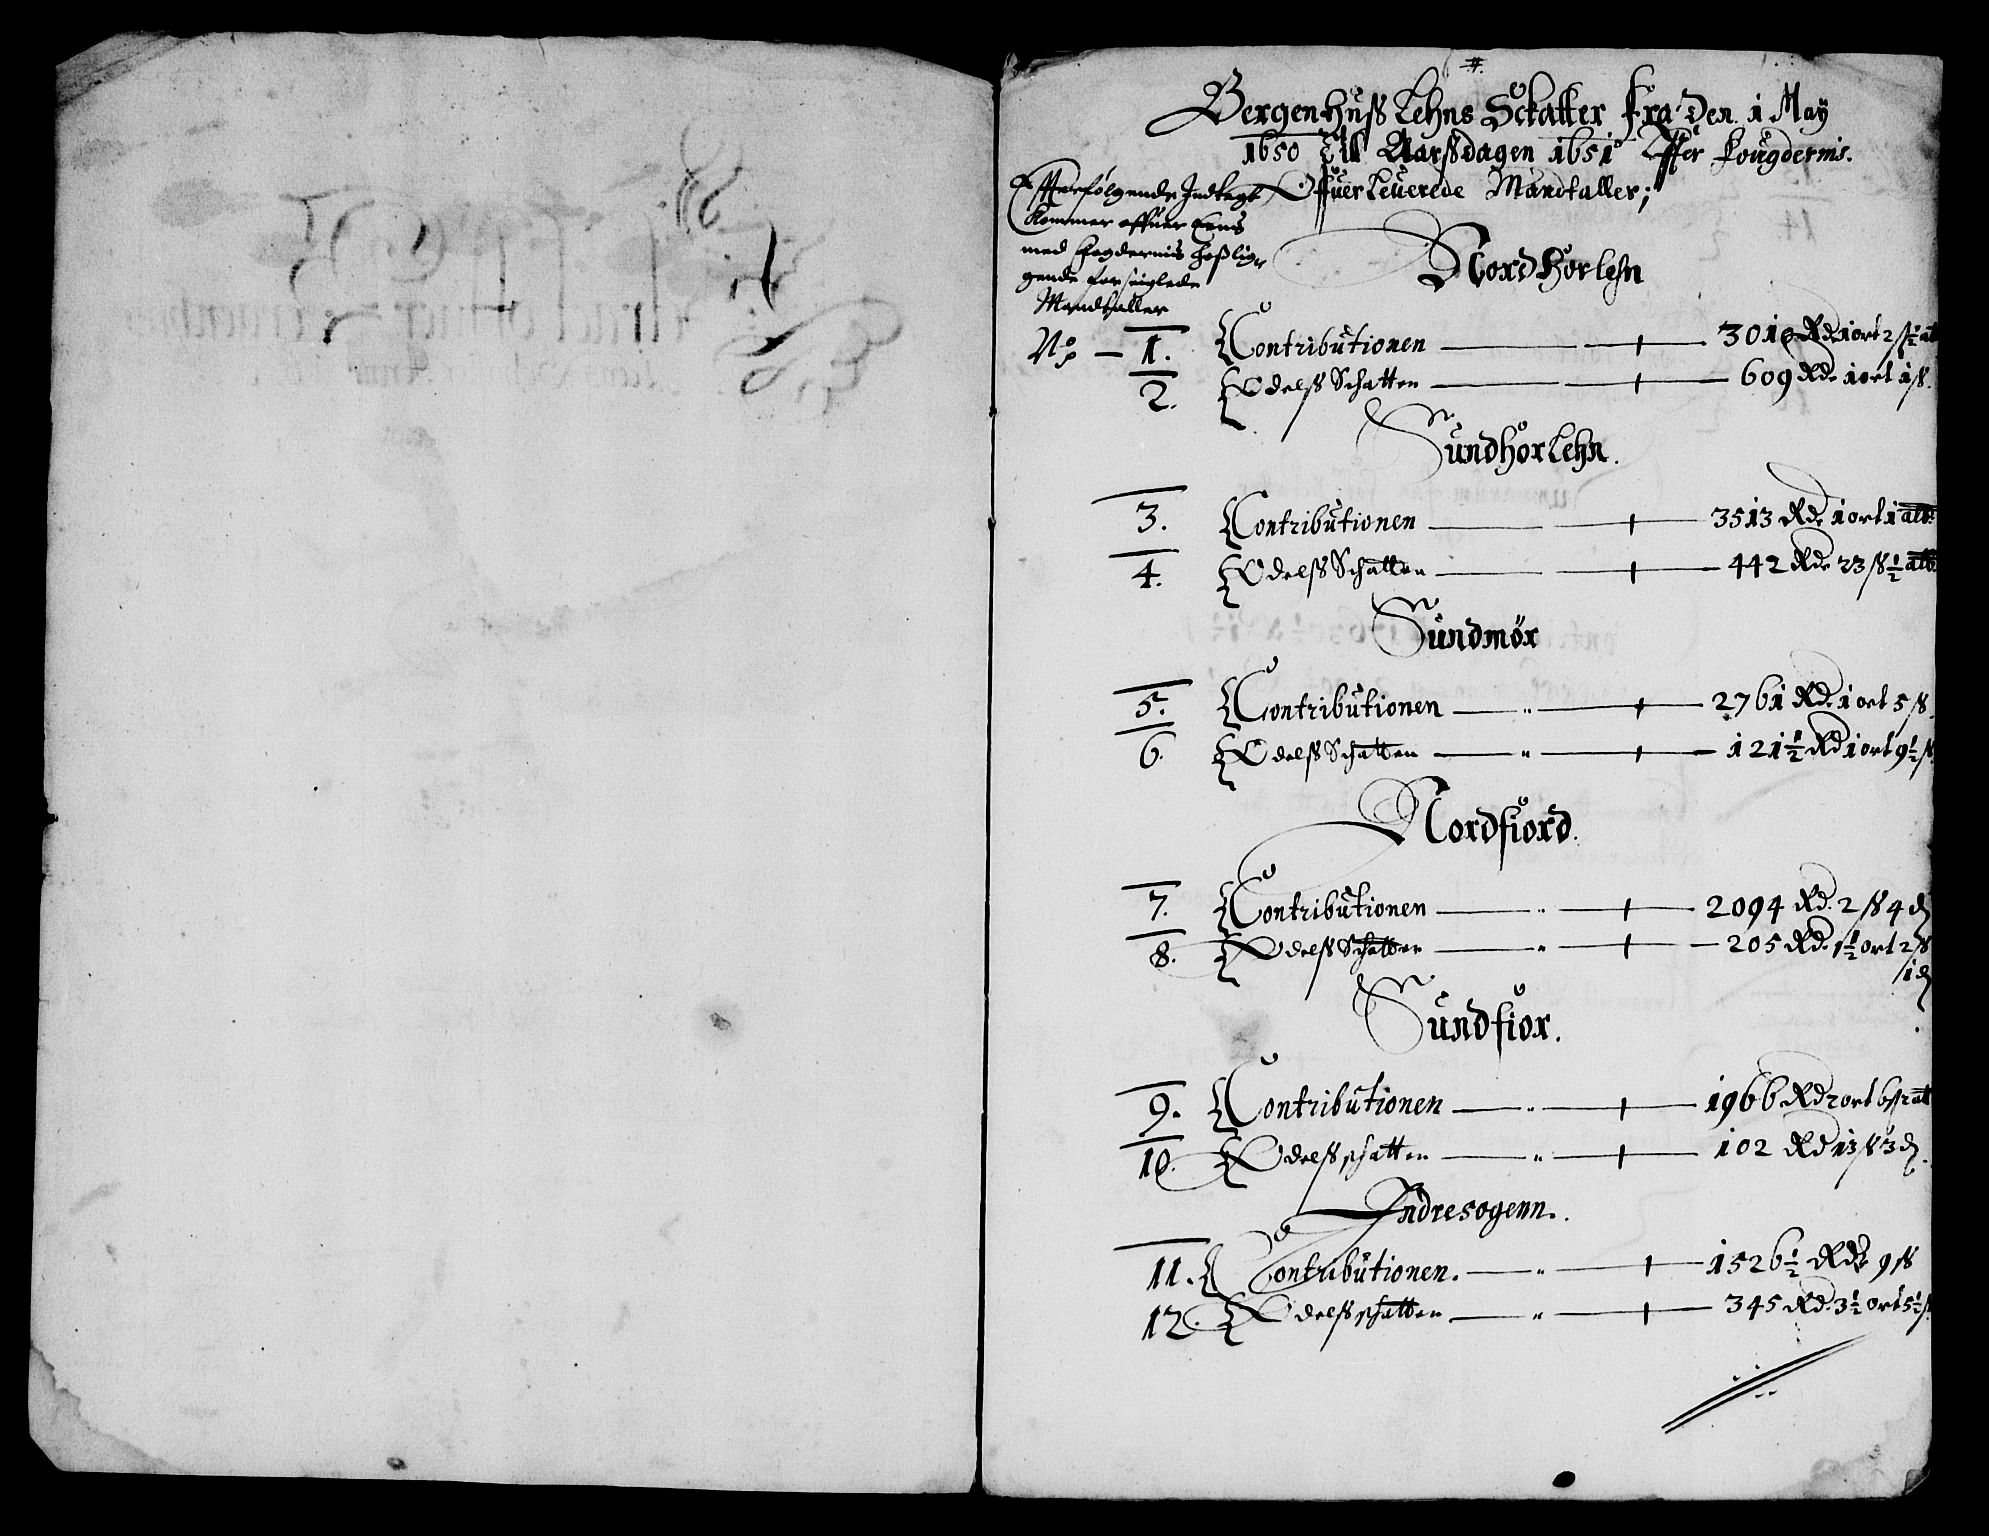 Bergenhuss Lehns Sckatter Fra den 1 May
1650 Til Aarssdagen 1651 Effter Fougdernis
Offuerleuerede Mandtaller;
Effterfølgende Indtegt
Kommer offuer Eens
med fogdernis hoss lig„
gende forseiglede
Mandtaller
Nordhorlehn
No — 1. Contributionen — 3010 Rd. 1 ort 2 ß ½ alb
2. Odelss Schatten — 609 Rd. 1 ort 1 ß.
Sundhorlehn.
3. Contributionen — 3513 Rd. 1 ort 1 alb.
4. Odelss Schatten — 442 Rd. 23 ß ½ alb.
Sundmør
5. Contributionen — 2761 Rd. 1 ort 5 ß.
6. Odelss Schatten — 121½ Rd 1 ort 9½ ß.
Nordfiord.
7. Contributionen — 2094 Rd. 2 ß 4 d
8. Odelss Schatten — 205 Rd. 1½ ort 2 ß
1 d
Sundfior.
9. Contributionen — 1966 Rd 2 ort 6 ß 2 alb
10. Odelss schatten — 102 Rd 13 ß 3 d.
Indresogenn.
11. Contributionen. — 1526½ Rd 9 ß
12. Odelss schatten — 345 Rd. 3½ ort 5½ ß